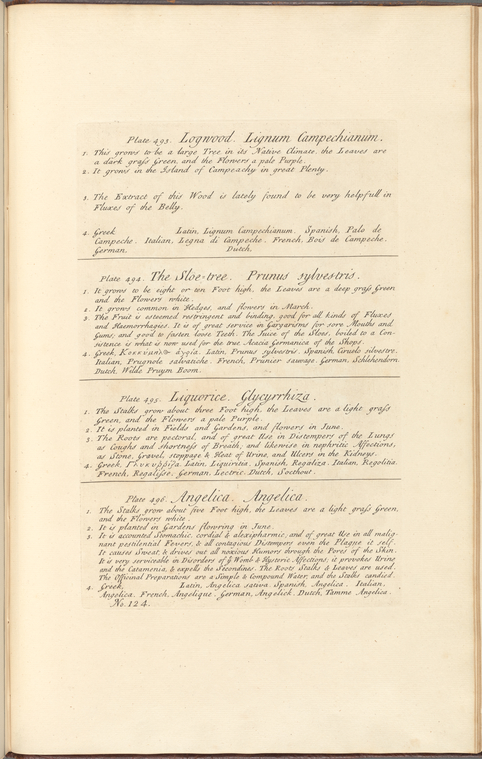 Plate 493. Logwood. Lignum Campechianum.
1. This grows to be a large Tree in its Native Climate, the Leaves are
a dark grass Green, and the Flowers a pale Purple.
2. It grows in the Island of Campeachy in great Plenty.
3. The Extract of this Wood is lately found to be very helpfull in
Fluxes of the Belly.
4. Greek Latin, Lignum Campechianum. Spanish, Palo de
Campeche. Italian, Legna di Campeche. French, Bois de Campeche.
German, Dutch,
Plate 494. The Sloe-tree. Prunus sylvestris.
1. It grows to be eight or ten Foot high, the Leaves are a deep grass Green
and the Flowers white.
2. It grows common in Hedges, and flowers in March.
3. The Fruit is esteemed restringent and binding, good for all kinds of Fluxes
and Haemorrhagies. It is of great service in Gargarisms for sore Mouths and
Gums; and good to fasten loose Teeth. The Juice of the Sloes, boiled to a Con-
sistence is what is now used for the true Acacia Germanica of the Shops.
4. Greek, ἀγρία. Latin, Prunus sylvestris. Spanish, Ciruelo silvestre.
Italian, Prugnole salvatiche. French, Prunier sauvage. German, Schlehendorn.
Dutch, Wilde Pruym Boom.
Plate 495. Liquorice. Glycyrrhiza.
1. The Stalks grow about three Foot high, the Leaves are a light grass
Green, and the Flowers a pale Purple.
2. It is planted in Fields and Gardens, and flowers in June.
3. The Roots are pectoral, and of great Use in Distempers of the Lungs
as Coughs and shortness of Breath, and likewise in nephritic Affections,
as Stone, Gravel, stoppage & Heat of Urine, and Ulcers in the Kidneys.
4. Greek, Γλυκυῤῥίζα. Latin, Liquiritia. Spanish, Regaliza. Italian, Regolitia.
French, Regalisse. German, Lecric. Dutch, Soethout.
Plate 496. Angelica. Angelica.
1. The Stalks grow about five Foot high, the Leaves are a light grass Green,
and the Flowers white.
2. It is planted in Gardens flowring in June.
3. It is accounted Stomachic, cordial & alexipharmic, and of great Use in all malig-
nant pestilential Fevers, & all contagious Distempers even the Plague it self.
It causes Sweat, & drives out all noxious Humors through the Pores of the Skin.
It is very serviceable in Disorders of ye Womb & Hysteric Affections; it provokes Urine
and the Catamenia, & expells the Secundines. The Roots Stalks & Leaves are used.
The Officinal Preparations are a Simple & Compound Water, and the Stalks candied.
4. Greek, Latin, Angelica sativa. Spanish, Angelica. Italian,
Angelica. French, Angelique. German, Angelick. Dutch, Tamme Angelica.
No. 124.